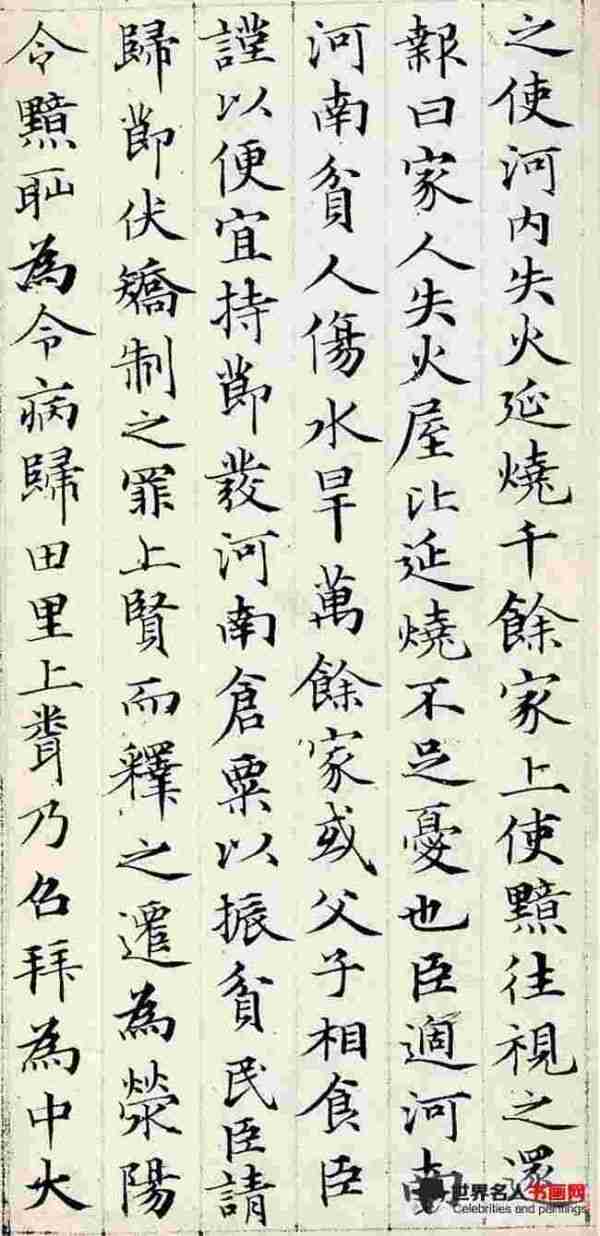 之使河内失火延燒千餘家上使黯往視之還
報曰家人失火屋比延燒不足憂也臣適河南
河南貧人傷水旱萬餘家或父子相食臣
謹以便宜持節發河南倉粟以振貧民臣請
歸節伏矯制之罪上賢而釋之遷為滎陽
令黯耻為令病歸田里上聞乃召拜為中大
世界名人书画网
Celebrities and paintings